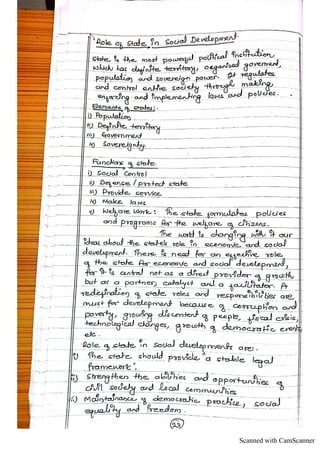 Role of State in Social Development
State is the most powerful political institution,
which has definite territory, organised goverment,
population and sovereign power. It regulates
and control entire society through making,
enforcing and implementing laws and policies.
Elements of state:
i) Population
ii) Definite territory
iii) Government
iv) Sovereignty.
Functions of state
i) Social control
ii) Defence / protect state
iii) Provide service
iv) Make laws
v) Welfare Work: The state formulates policies
and programs for the welfare of citizens.
The world is changing with it our
ideas about the state's role in economic and social
development. There is need for an effective role
of the state for economic and social development,
for it is central not as a direct provider of growth
but as a partner, catalyst and a facilitator. A
redefination of state roles and responsibilities are
must for development because of corruption and
poverty, growing discontent of people, fiscal crisis,
technological changes, growth of democratic events
etc.
Role of state in social developments are:
i) The state should provide a stable legal
framework.
ii) Strengthen the abilities and opportunities of
civil society and local communities
iii) Maintainance of democratic practice, social
equality and freedom.
Scanned with CamScanner